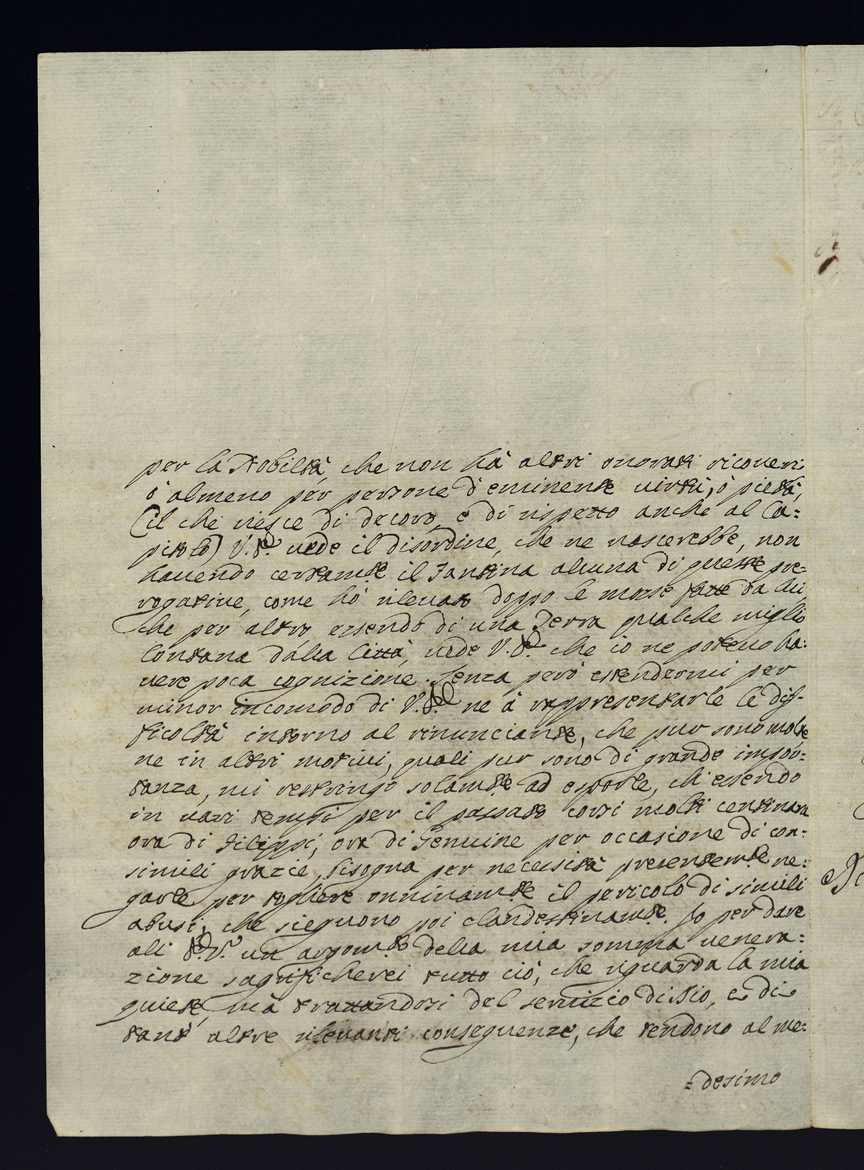 per la Nobiltà, che non hà altri onorati ricoveri
ò almeno per persone d'eminente virtù, ò pietà,
(il che riesce di decoro, e di rispetto anche al Ca:
pitolo) V. S. vede il disordine, che ne nascerebbe, non
havendo certamte il Fantina alcuna di queste pre-
rogative, come hò rilevato doppo le mosse fatte da lui
che per altro essendo di una Terra qualche miglio
lontana dalla Città, vede V. S. che io ne potevo ha:
vere poca cognizione. Senza però estendermi per
minor incomodo di V. S. Ill ne à rappresentarle le dif-
ficoltà intorno al rinunciante, che pur sono molte
ne in altri motivi, quali pur sono di grande impor:
tanza, mi restringo solamte ad esporle, ch'essendo
in varj tempi per il passato corsi molti centinara
ora di Filippi, ora di Genuine per occasione di con-
simili grazie, bisogna per necessità presentemte ne-
garle per togliere onninamte il pericolo di simili
abusi, che sieguono poi clandestinamte. Io per dare
all V. S. un argomto della mia somma venera:
zione sagrificherei tutto ciò, che riguarda la mia
quiete, mà trattandosi del servizio di Dio, e di
tant' altre rilevanti conseguenze, che tendono al me:
=desimo